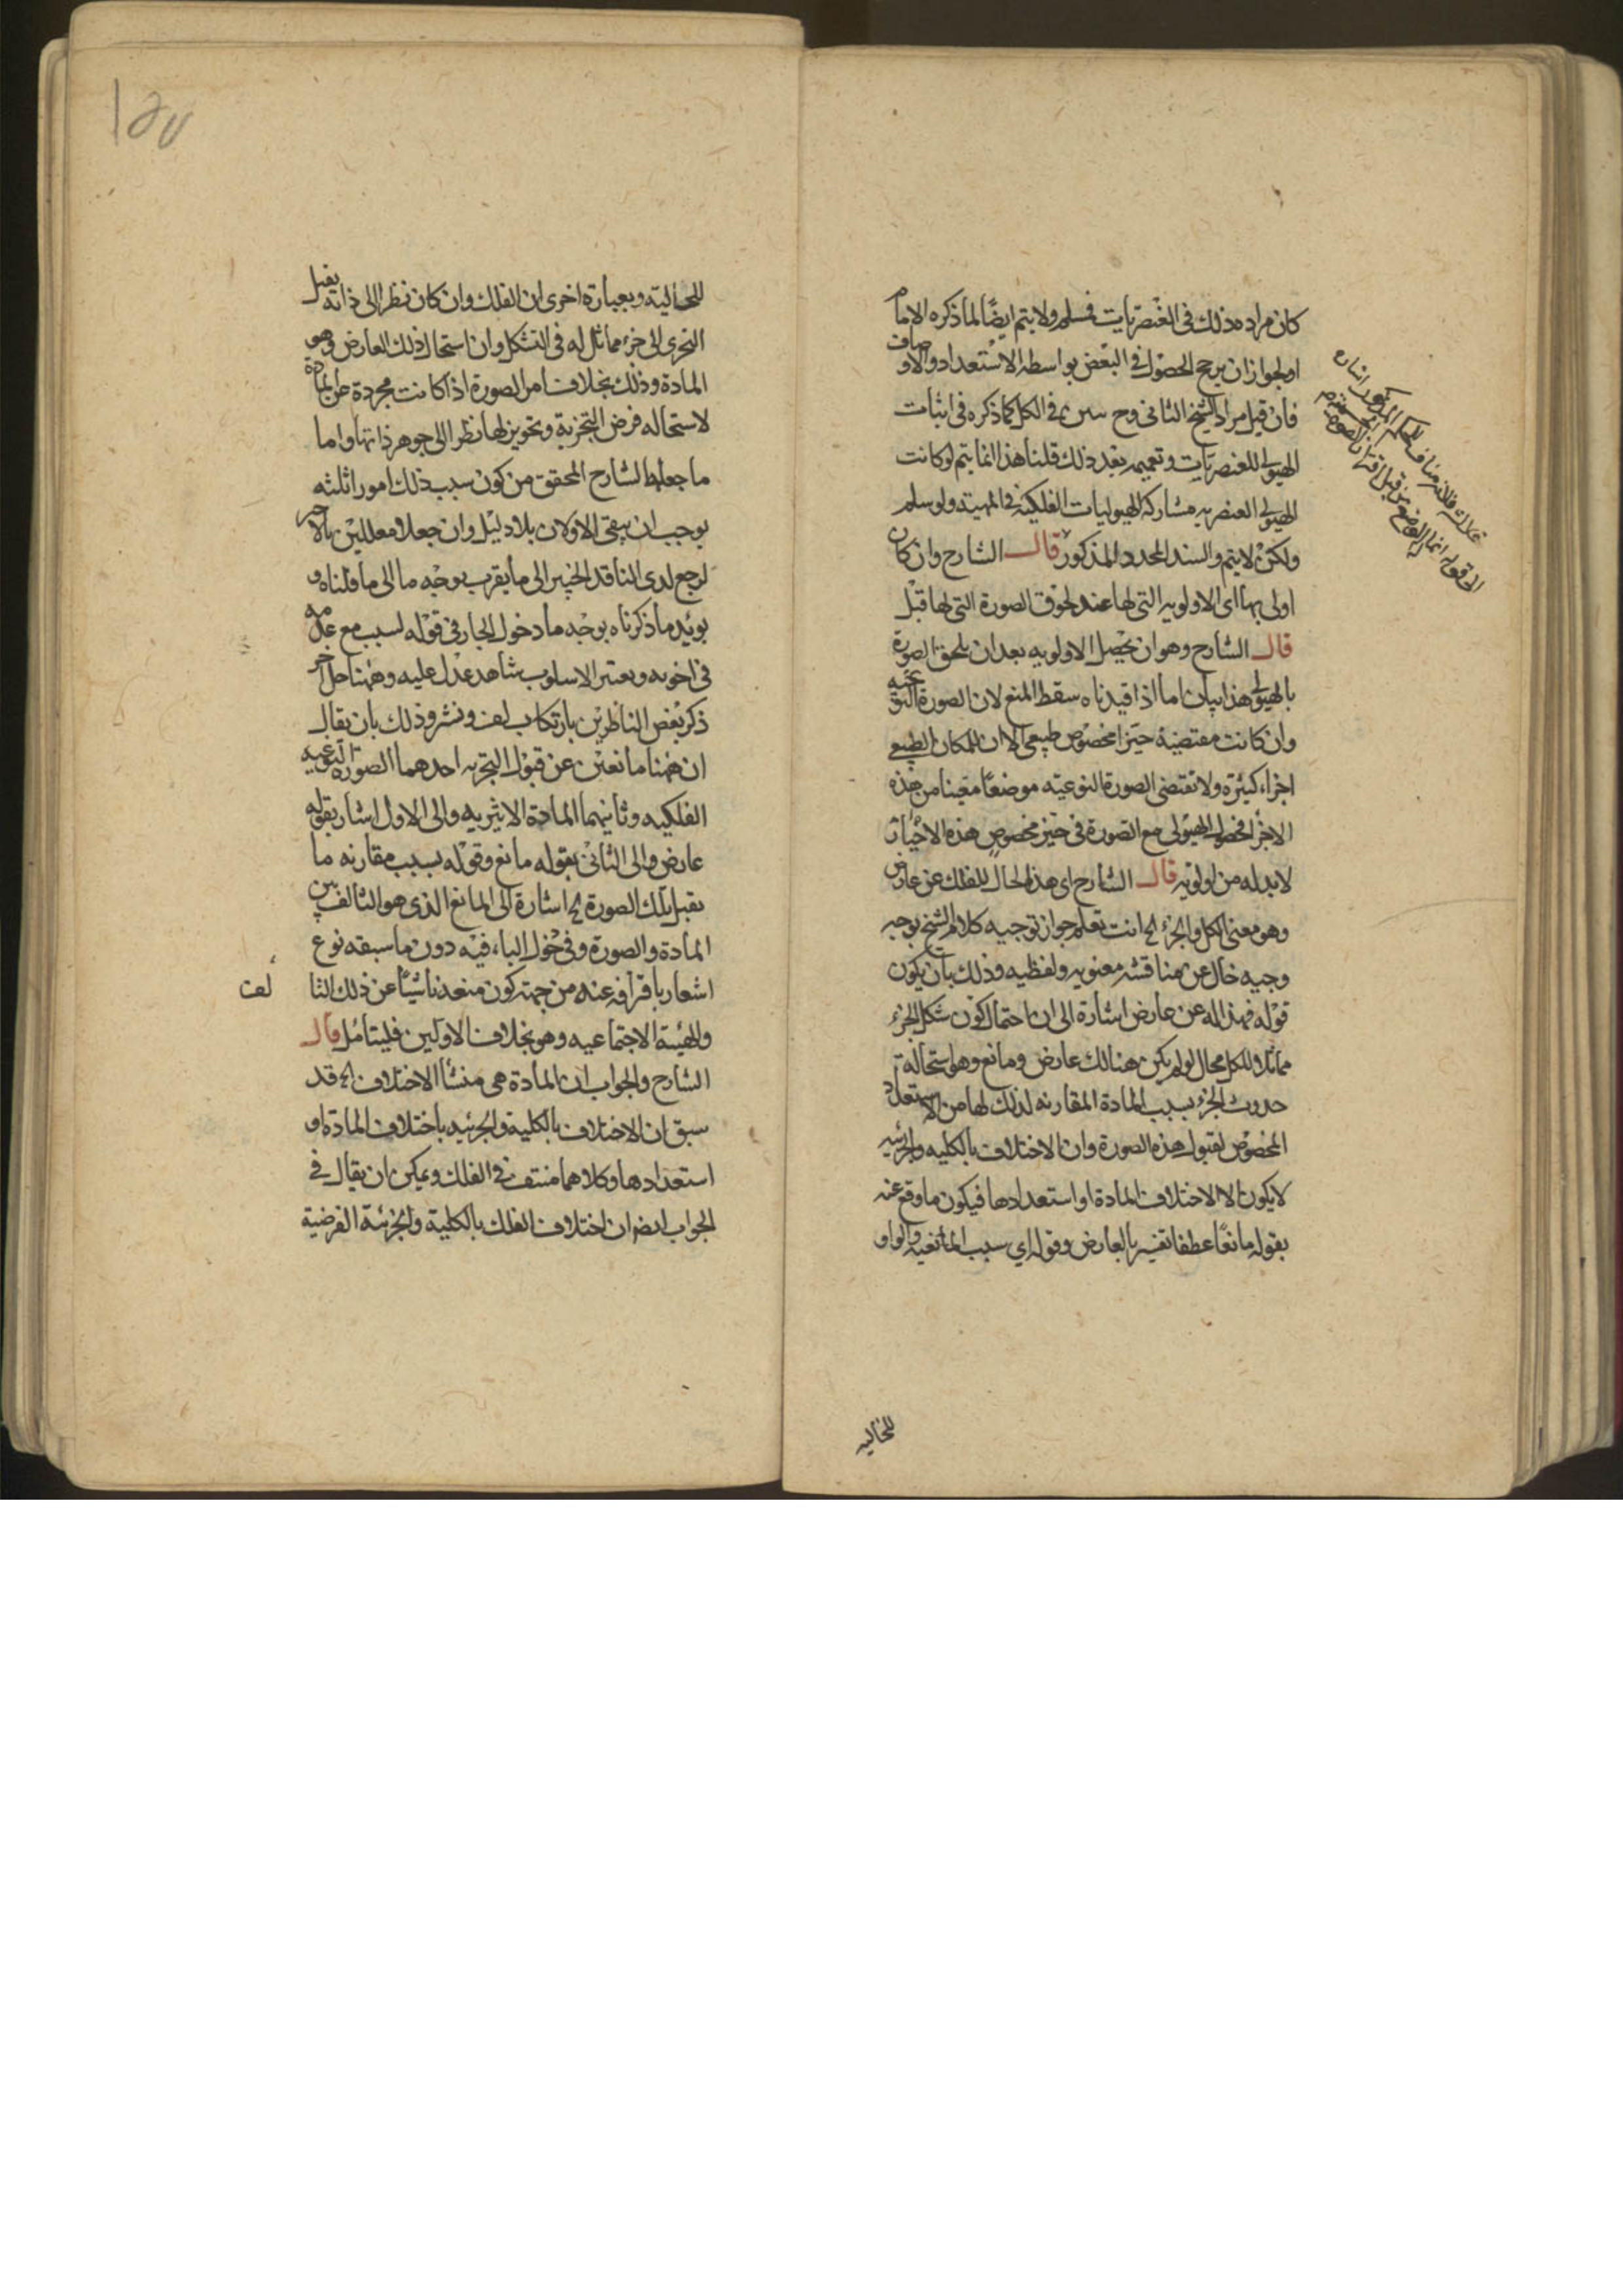 كان مراده ذلك في العنصريات فسلم ولا يتم ايضا لما ذكره الامام
او لجواز ان يرجح الحصول في البعض بواسطة الاستعداد والاوصاف
فان قيل مراد الشيخ الثاني وح في الكل كما ذكره في اثبات
الهيولى للعنصريات وتعميمه بعد ذلك قلنا هذا انما يتم لو كانت
الهيولى العنصريه مشاركة الهيوليات الفلكية في المهية ولو سلم
ولكن لا يتم والسند المحدد المذكور قال الشارح وان كان
اولى بها اى الاولويه التى لها عند لحوق الصورة التى لها قبل
قال الشارح وهو ان يحصل الاولويه بعد ان يلحق الصورة
بالهيولى هذا بيان اما اذا قيدناه سقط المنع لان الصورة النوعيه
وان كانت مقتضية حيزا مخصوص طبيعى الا ان للمكان الطبيعي
اجزاء كثيرة ولا تقتضى الصورة النوعيه موضعا معينا من هذه
الاجزا فحصول الهيولى مع الصورة في حيز مخصوص هذه الاحياز
لا بد له من اولويه قال الشارح اى هذا الحال للفلك عن عارض
وهو معنى الكل والجزء الخ انت تعلم جواز توجيه كلام الشيخ بوجه
وجيه خال عن مناقشه معنويه ولفظيه وذلك بان يكون
قوله فهذا له عن عارض اشارة الى ان احتمال كون شكل الجزء
مماثلا للكل محال لو لم يكن هنالك عارض ومانع وهو استحالة
حدوث الجزء بسبب المادة المقارنه لذلك لها من الاستعداد
المخصوص لقبول هذه الصورة وان الاختلاف بالكليه والجزئيه
لا يكون الا لاختلاف المادة او استعدادها فيكون ما وقع عنه
بقوله مانعا عطفا تفسيريا لعارض وقوله اي سبب المانعيه والواو
للحاليه
للحالية وبعبارة اخرى ان الفلك وان كان نظرا الى ذاته يقبل
التجزى الى جزء مماثل له في التشكل وان استحال ذلك العارض وهو
المادة وذلك بخلاف امر الصورة اذا كانت مجردة عن المادة
لاستحاله فرض التجزية وتجويز لها نظرا الى جوهر ذاتها واما
ما جعله الشارح المحقق من كون سبب ذلك امورا ثلثه
يوجب ان يبقى الاولان بلا دليل وان جعلا معللين بالاخير
لرجع لدى الناقد الخبير الى ما يقرب بوجه ما الى ما قلناه و
يؤيد ما ذكرناه بوجه ما دخول الجار في قوله لسبب مع عدمه
في اخويه وتغير الاسلوب شاهد عدل عليه وههنا حل اخر
ذكر بعض الناظرين بارتكاب لف ونشر وذلك بان يقال
ان ههنا مانعين عن قبول التجزيه احدهما الصوره النوعيه
الفلكيه وثانيهما المادة الاثيريه والى الاول اشار بقوله
عارض والى الثانى بقوله مانع وقوله بسبب مقارنه ما
يقبل تلك الصورة الخ اشارة الى المانع الذى هو التالف بين
المادة والصورة وفى دخول الباء فيه دون ما سبقه نوع
اشعار بافراقه عنه من جهة كون منعه ناشيا عن ذلك التا
لف
والهيئة الاجتماعيه وهو بخلاف الاولين فليتامل قال
الشارح والجواب ان المادة هى منشأ الاختلاف الخ قد
سبق ان الاختلاف بالكلية والجزئيه باختلاف المادة او
استعدادها وكلاهما منتف في الفلك ويمكن ان يقال في
الجواب ايضا ان اختلاف الفلك بالكلية والجزئية الفرضية